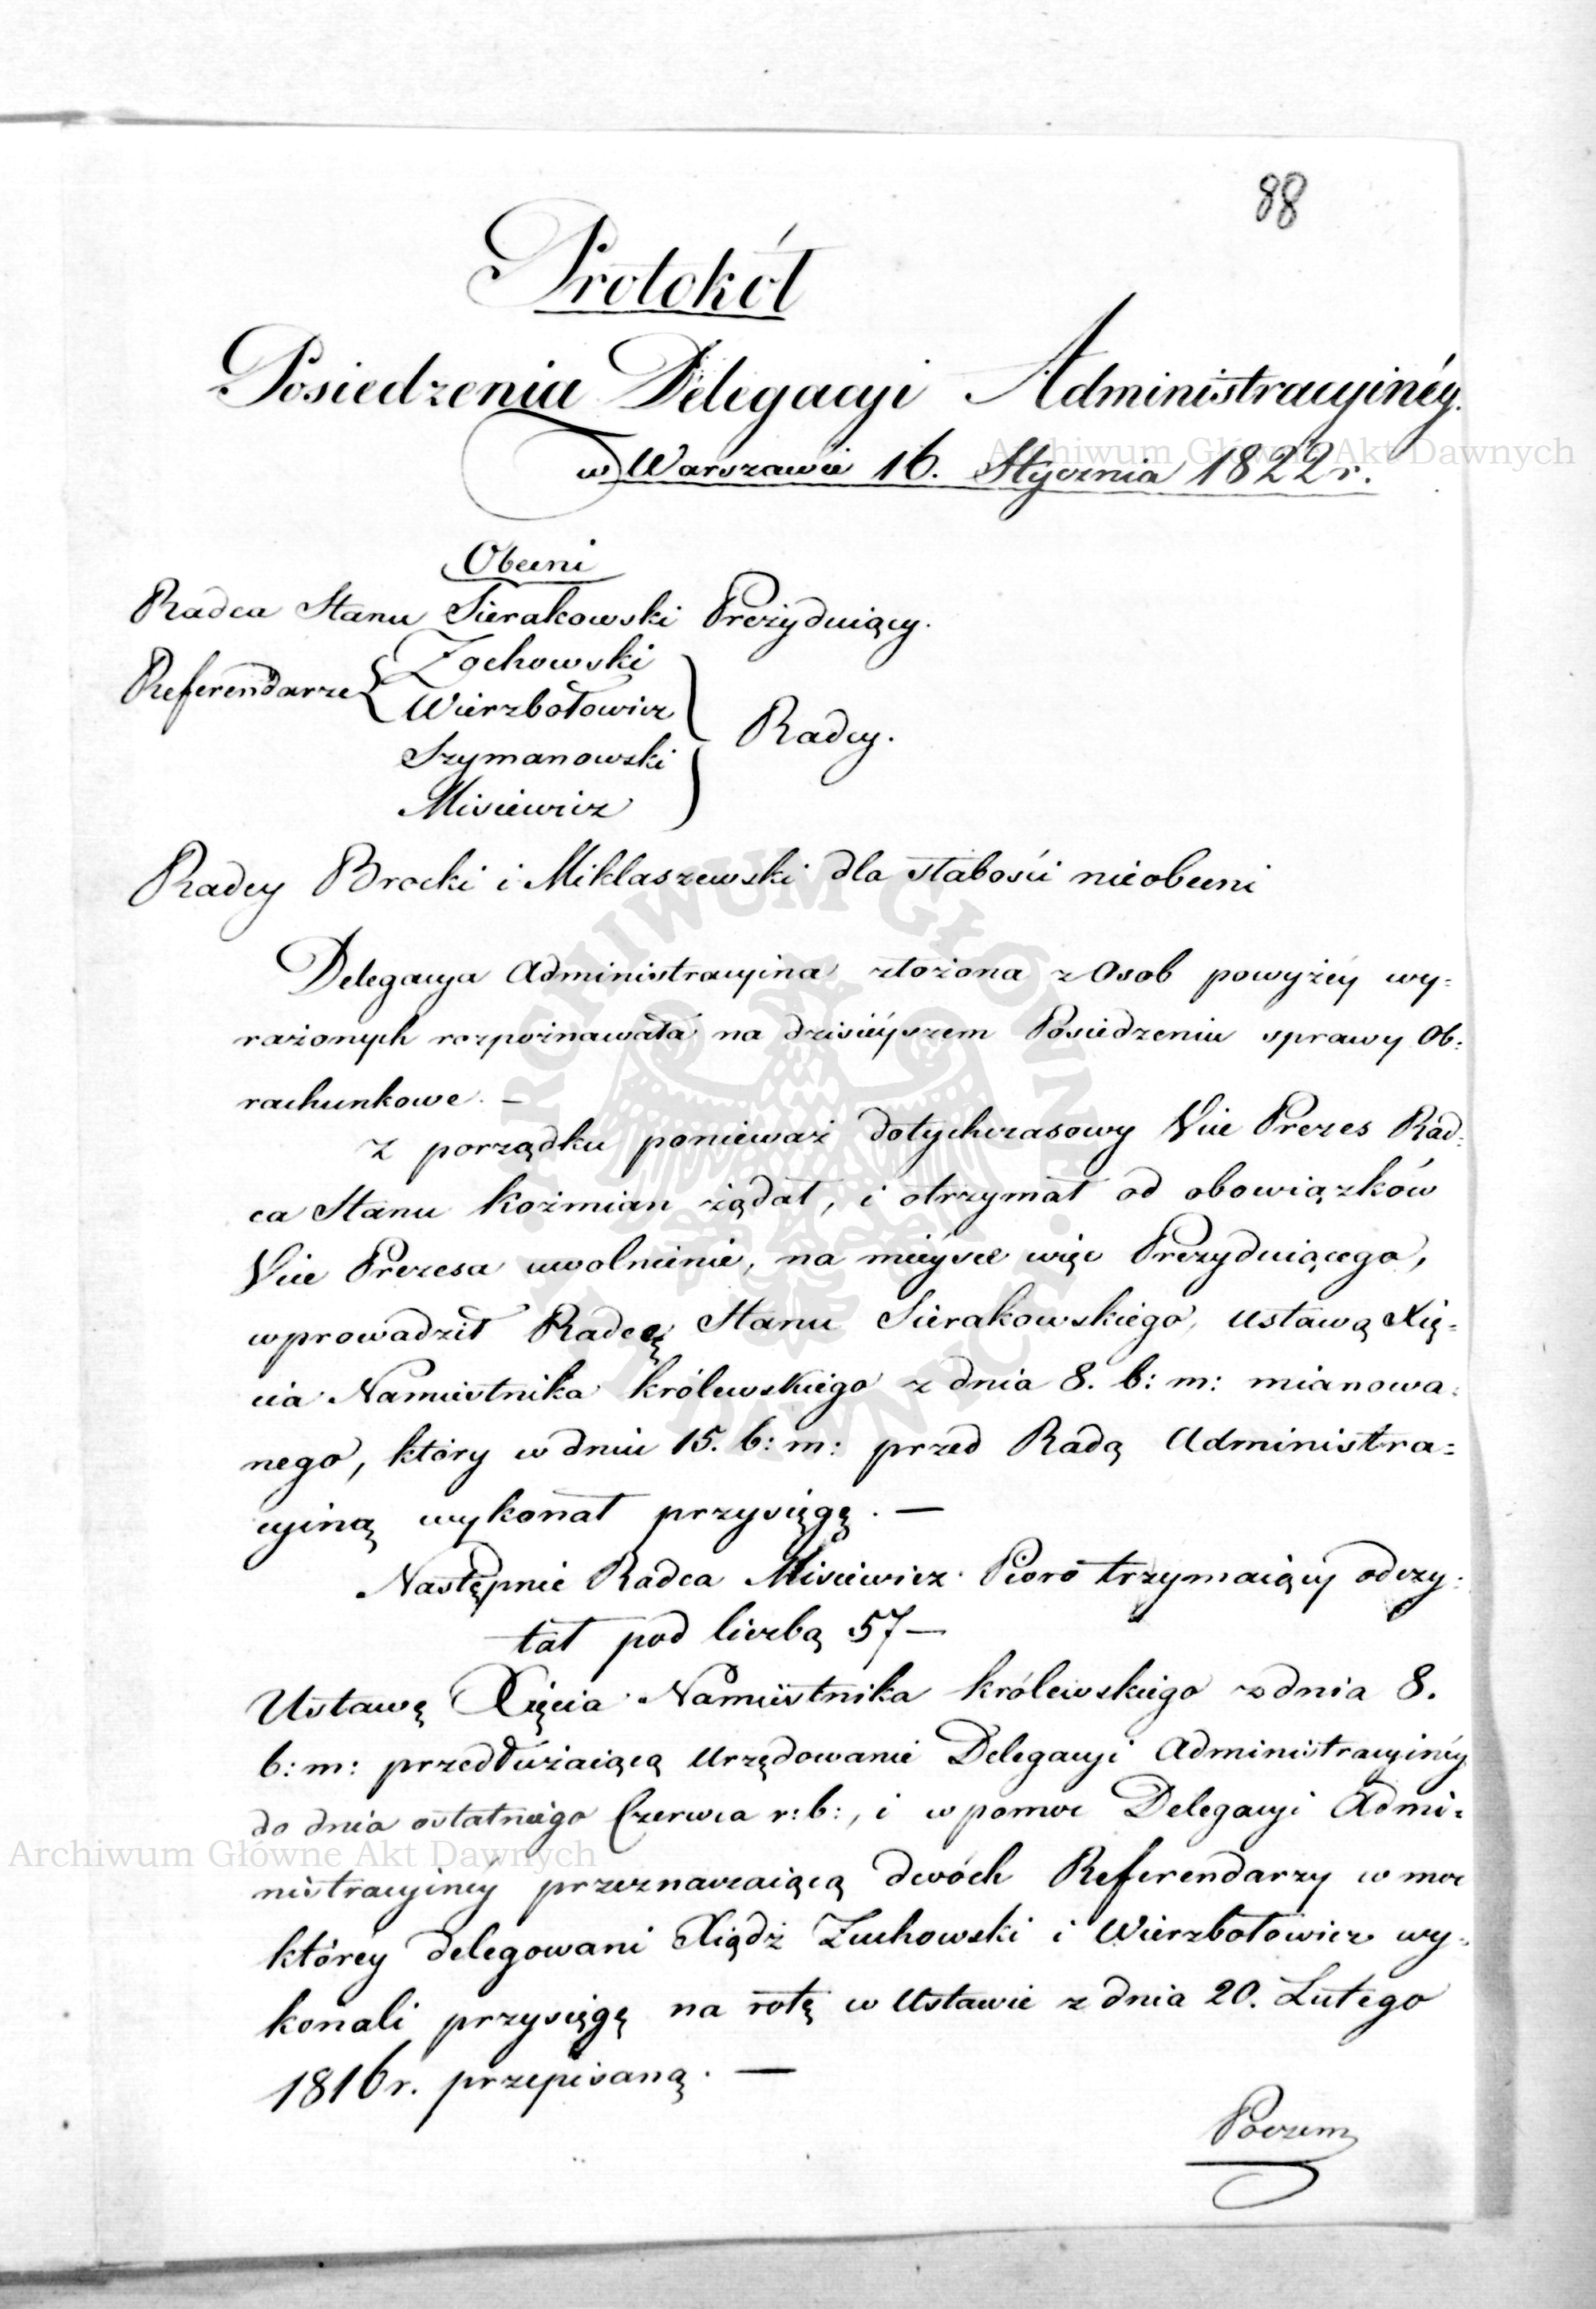 88
Protokół
Posiedzenia Delegacyi Administracyinéy.
w Warszawie 16. Stycznia 1822 r.
Obecni
Radca Stanu Sierakowski Prezyduiący.
Referendarze { Zochowski
Wierzbołowicz
Szymanowski
Misiewicz } Radcy.
Radcy Brocki i Miklaszewski dla słabości nieobecni
Delegacya Administracyina złożona z Osob powyżéy wy=
rażonych rozpoznawała na dzisiéyszem Posiedzeniu sprawy Ob=
rachunkowe. –
Z porządku ponieważ dotychczasowy Vice Prezes Rad=
ca Stanu Koźmian żądał, i otrzymał od obowiązków
Vice Prezesa uwolnienie, na mieysce więc Prezyduiącego,
wprowadził Radcę Stanu Sierakowskiego, Ustawą Xię=
cia Namiestnika Królewskiego z dnia 8. b: m: mianowa=
nego, który w dniu 15. b: m: przed Radą Administra=
cyiną wykonał przysięgę. —
Następnie Radca Misiewicz Pioro trzymaiący odczy=
tał pod liczbą 57 —
Ustawę Xięcia Namiestnika Królewskiego z dnia 8.
b: m: przedłużaiącą Urzędowanie Delegacyi Administracyinéy
do dnia ostatniego Czerwca r: b:, i w pomoc Delegacyi Admi=
nistracyinéy przeznaczaiącą dwóch Referendarzy w moc
któréy delegowani Xiądz Zuchowski i Wierzbołowicz wy=
konali przysięgę na rotę w Ustawie z dnia 20. Lutego
1816 r. przepisaną. —
Poczem
Archiwum Główne Akt Dawnych
Archiwum Główne Akt Dawnych
ARCHIWUM GŁÓWNE AKT DAWNYCH